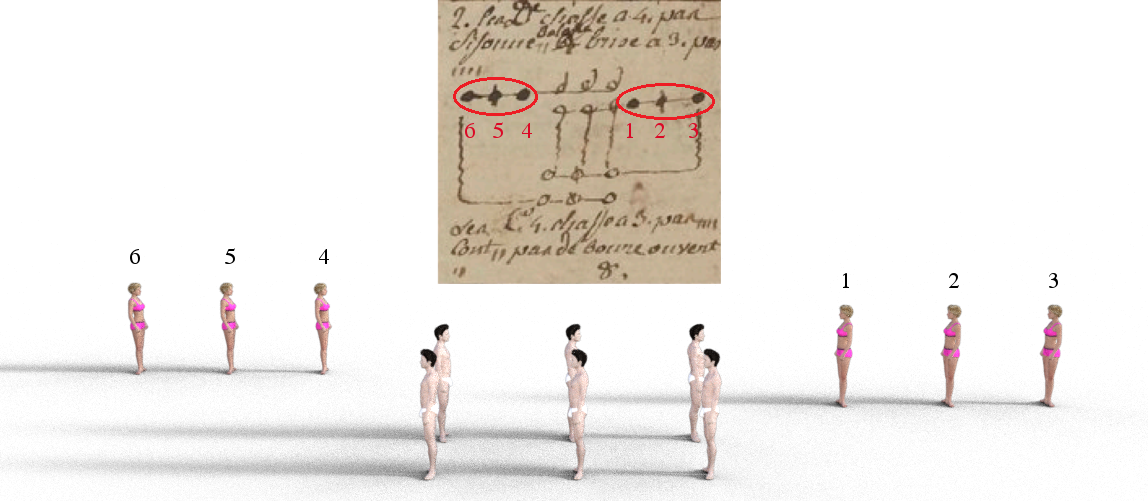 2. Les De chasse a 4. par
sisonne,, Balotte & brise a 3. par
,,,,
6 5 4 1 2 3
Les Co 4. chasse a 3. par ,,,,
Cont,, pas de Boure ouvert
,, &.
6 5 4
1 2 3